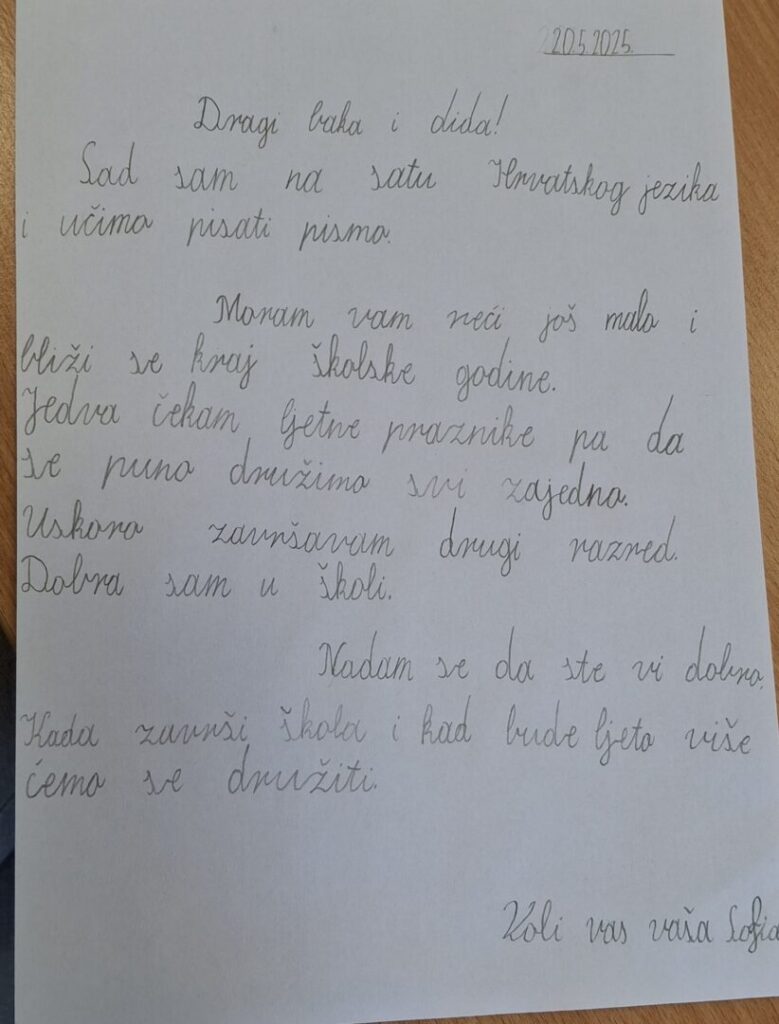 20.5.2025.
Dragi baka i dida!
Sad sam na satu Hrvatskog jezika
i učimo pisati pismo.
Moram vam reći još malo i
bliži se kraj školske godine.
Jedva čekam ljetne praznike pa da
se puno družimo svi zajedno.
Uskoro završavam drugi razred.
Dobra sam u školi.
Nadam se da ste vi dobro.
Kada završi škola i kad bude ljeto više
ćemo se družiti.
Voli vas vaša Sofia